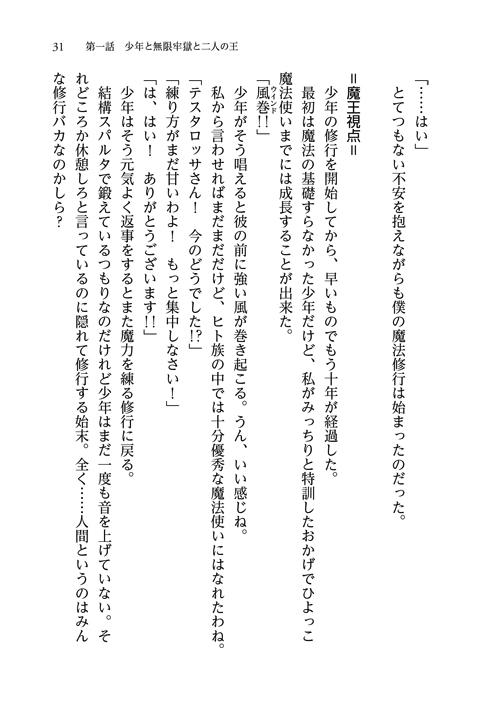 31　第一話　少年と無限牢獄と二人の王
「……はい」
　とてつもない不安を抱えながらも僕の魔法修行は始まったのだった。
＝魔王視点＝
　少年の修行を開始してから、早いものでもう十年が経過した。
　最初は魔法の基礎すらなかった少年だけど、私がみっちりと特訓したおかげでひよっこ
魔法使いまでには成長することが出来た。
「風巻!!」
ウインド
　少年がそう唱えると彼の前に強い風が巻き起こる。うん、いい感じね。
　私から言わせればまだまだだけど、ヒト族の中では十分優秀な魔法使いにはなれたわね。
「テスタロッサさん！　今のどうでした!?」
「練り方がまだ甘いわよ！　もっと集中しなさい！」
「は、はい！　ありがとうございます!!」
　少年はそう元気よく返事をするとまた魔力を練る修行に戻る。
　結構スパルタで鍛えているつもりなのだけれど少年はまだ一度も音を上げていない。そ
れどころか休憩しろと言っているのに隠れて修行する始末。全く……人間というのはみん
な修行バカなのかしら？